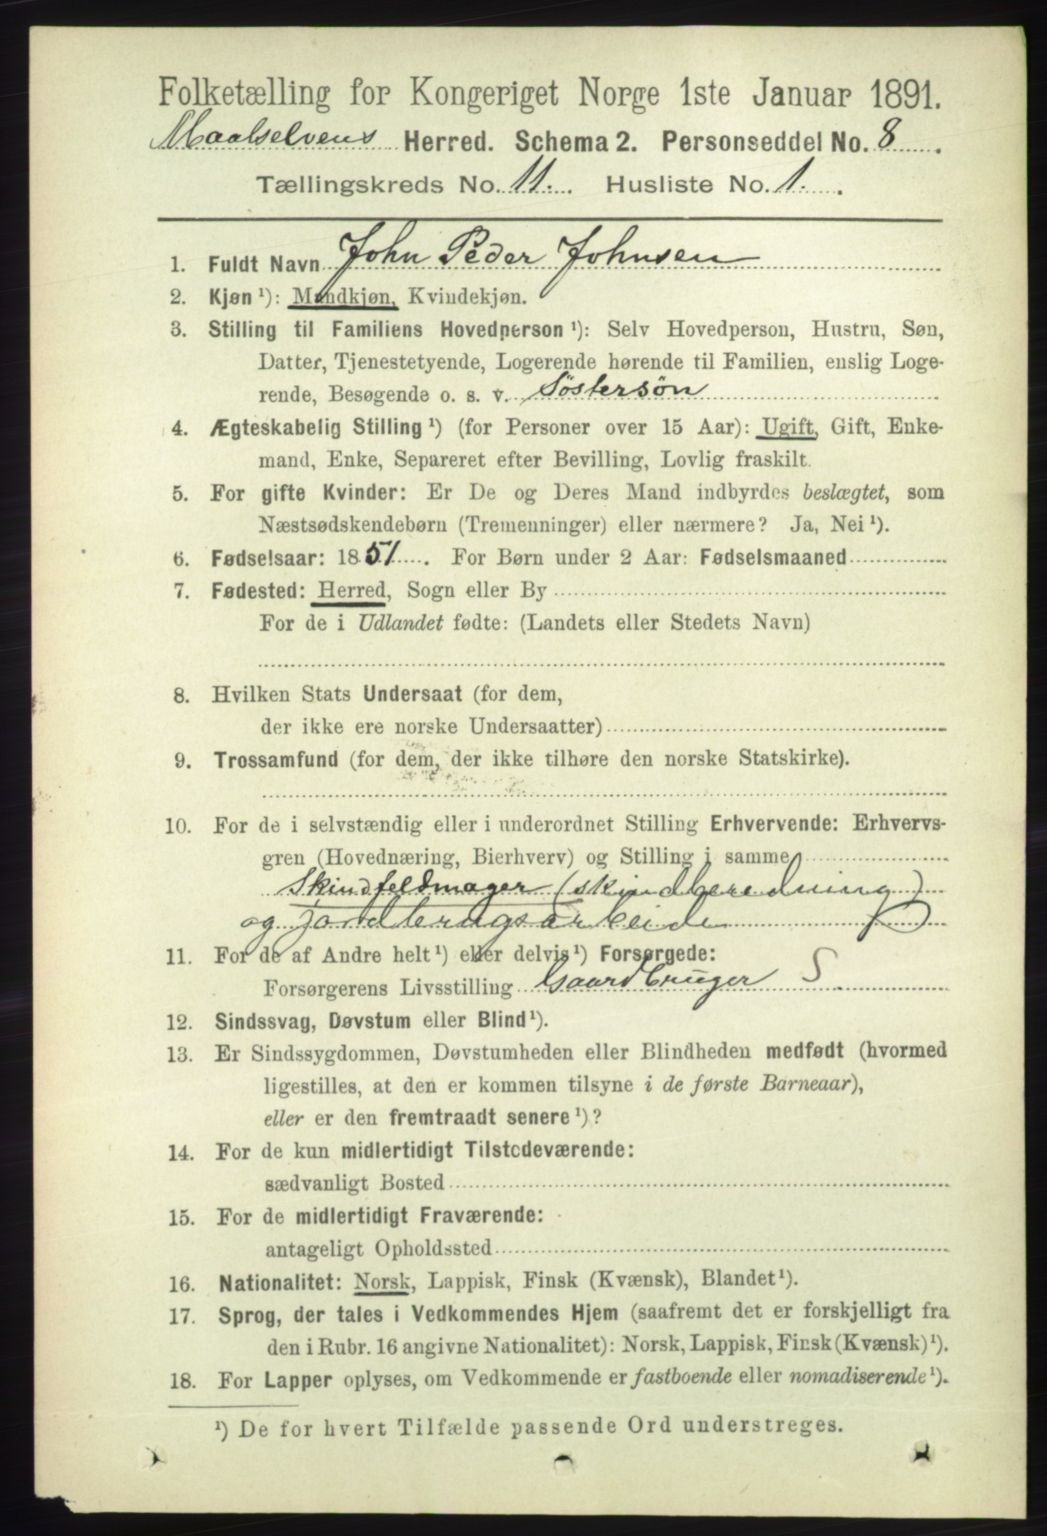 Folketælling for Kongeriget Norge 1ste Januar 1891.
Maalselvens Herred. Schema 2. Personseddel No. 8.
Tællingskreds No. 11. Husliste No. 1.
1. Fuldt Navn John Peder Johnsen
2. Kjøn ¹): Mandkjøn, Kvindekjøn.
3. Stilling til Familiens Hovedperson ¹): Selv Hovedperson, Hustru, Søn,
Datter, Tjenestetyende, Logerende hørende til Familien, enslig Loge-
rende, Besøgende o. s. v. Söstersön
4. Ægteskabelig Stilling ¹) (for Personer over 15 Aar): Ugift, Gift, Enke-
mand, Enke, Separeret efter Bevilling, Lovlig fraskilt.
5. For gifte Kvinder: Er De og Deres Mand indbyrdes beslægtet, som
Næstsødskendebørn (Tremenninger) eller nærmere? Ja, Nei ¹).
6. Fødselsaar: 1851. For Børn under 2 Aar: Fødselsmaaned
7. Fødested: Herred, Sogn eller By
For de i Udlandet fødte: (Landets eller Stedets Navn)
8. Hvilken Stats Undersaat (for dem,
der ikke ere norske Undersaatter)
9. Trossamfund (for dem, der ikke tilhøre den norske Statskirke).
10. For de i selvstændig eller i underordnet Stilling Erhvervende: Erhvervs-
gren (Hovednæring, Bierhverv) og Stilling i samme
Skindfeldmager (skindberedning)
og jordbrugsarbeide
11. For de af Andre helt ¹) eller delvis ¹) Forsørgede:
Forsørgerens Livsstilling Gaardbruger S
12. Sindssvag, Døvstum eller Blind ¹).
13. Er Sindssygdommen, Døvstumheden eller Blindheden medfødt (hvormed
ligestilles, at den er kommen tilsyne i de første Barneaar),
eller er den fremtraadt senere ¹)?
14. For de kun midlertidigt Tilstedeværende:
sædvanligt Bosted
15. For de midlertidigt Fraværende:
antageligt Opholdssted
16. Nationalitet: Norsk, Lappisk, Finsk (Kvænsk), Blandet ¹).
17. Sprog, der tales i Vedkommendes Hjem (saafremt det er forskjelligt fra
den i Rubr. 16 angivne Nationalitet): Norsk, Lappisk, Finsk (Kvænsk) ¹).
18. For Lapper oplyses, om Vedkommende er fastboende eller nomadiserende ¹).
¹) De for hvert Tilfælde passende Ord understreges.